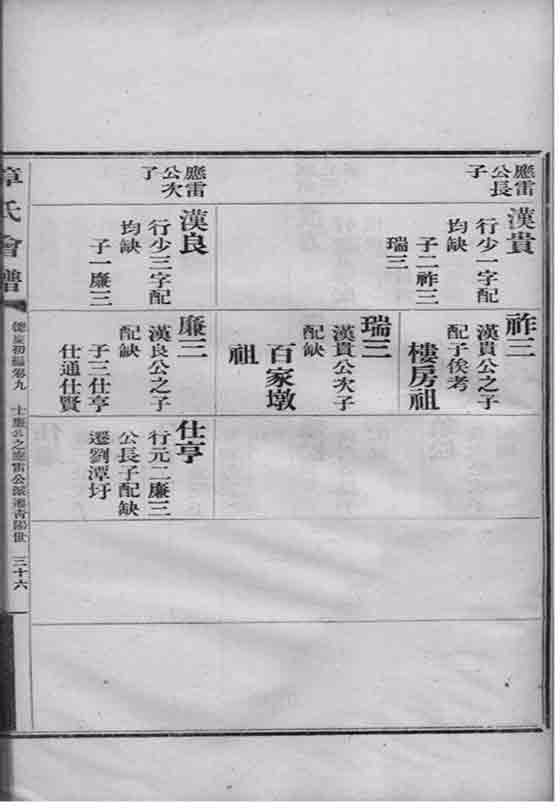 應雷
公長
子
漢貴
行少一字配
均缺
子二祚三
瑞三
應雷
公次
子
漢良
行少三字配
均缺
子一廉三
祚三
漢貴公之子
配子俟考
樓房祖
瑞三
漢貴公次子
配缺
百家墩
祖
廉三
漢良公之子
配缺
子三仕亨
仕通仕賢
仕亨
行元二廉三
公長子配缺
遷劉潭圩
章氏會譜
德慶初編卷九
士廉公之應雷公派遷青陽世
三十六